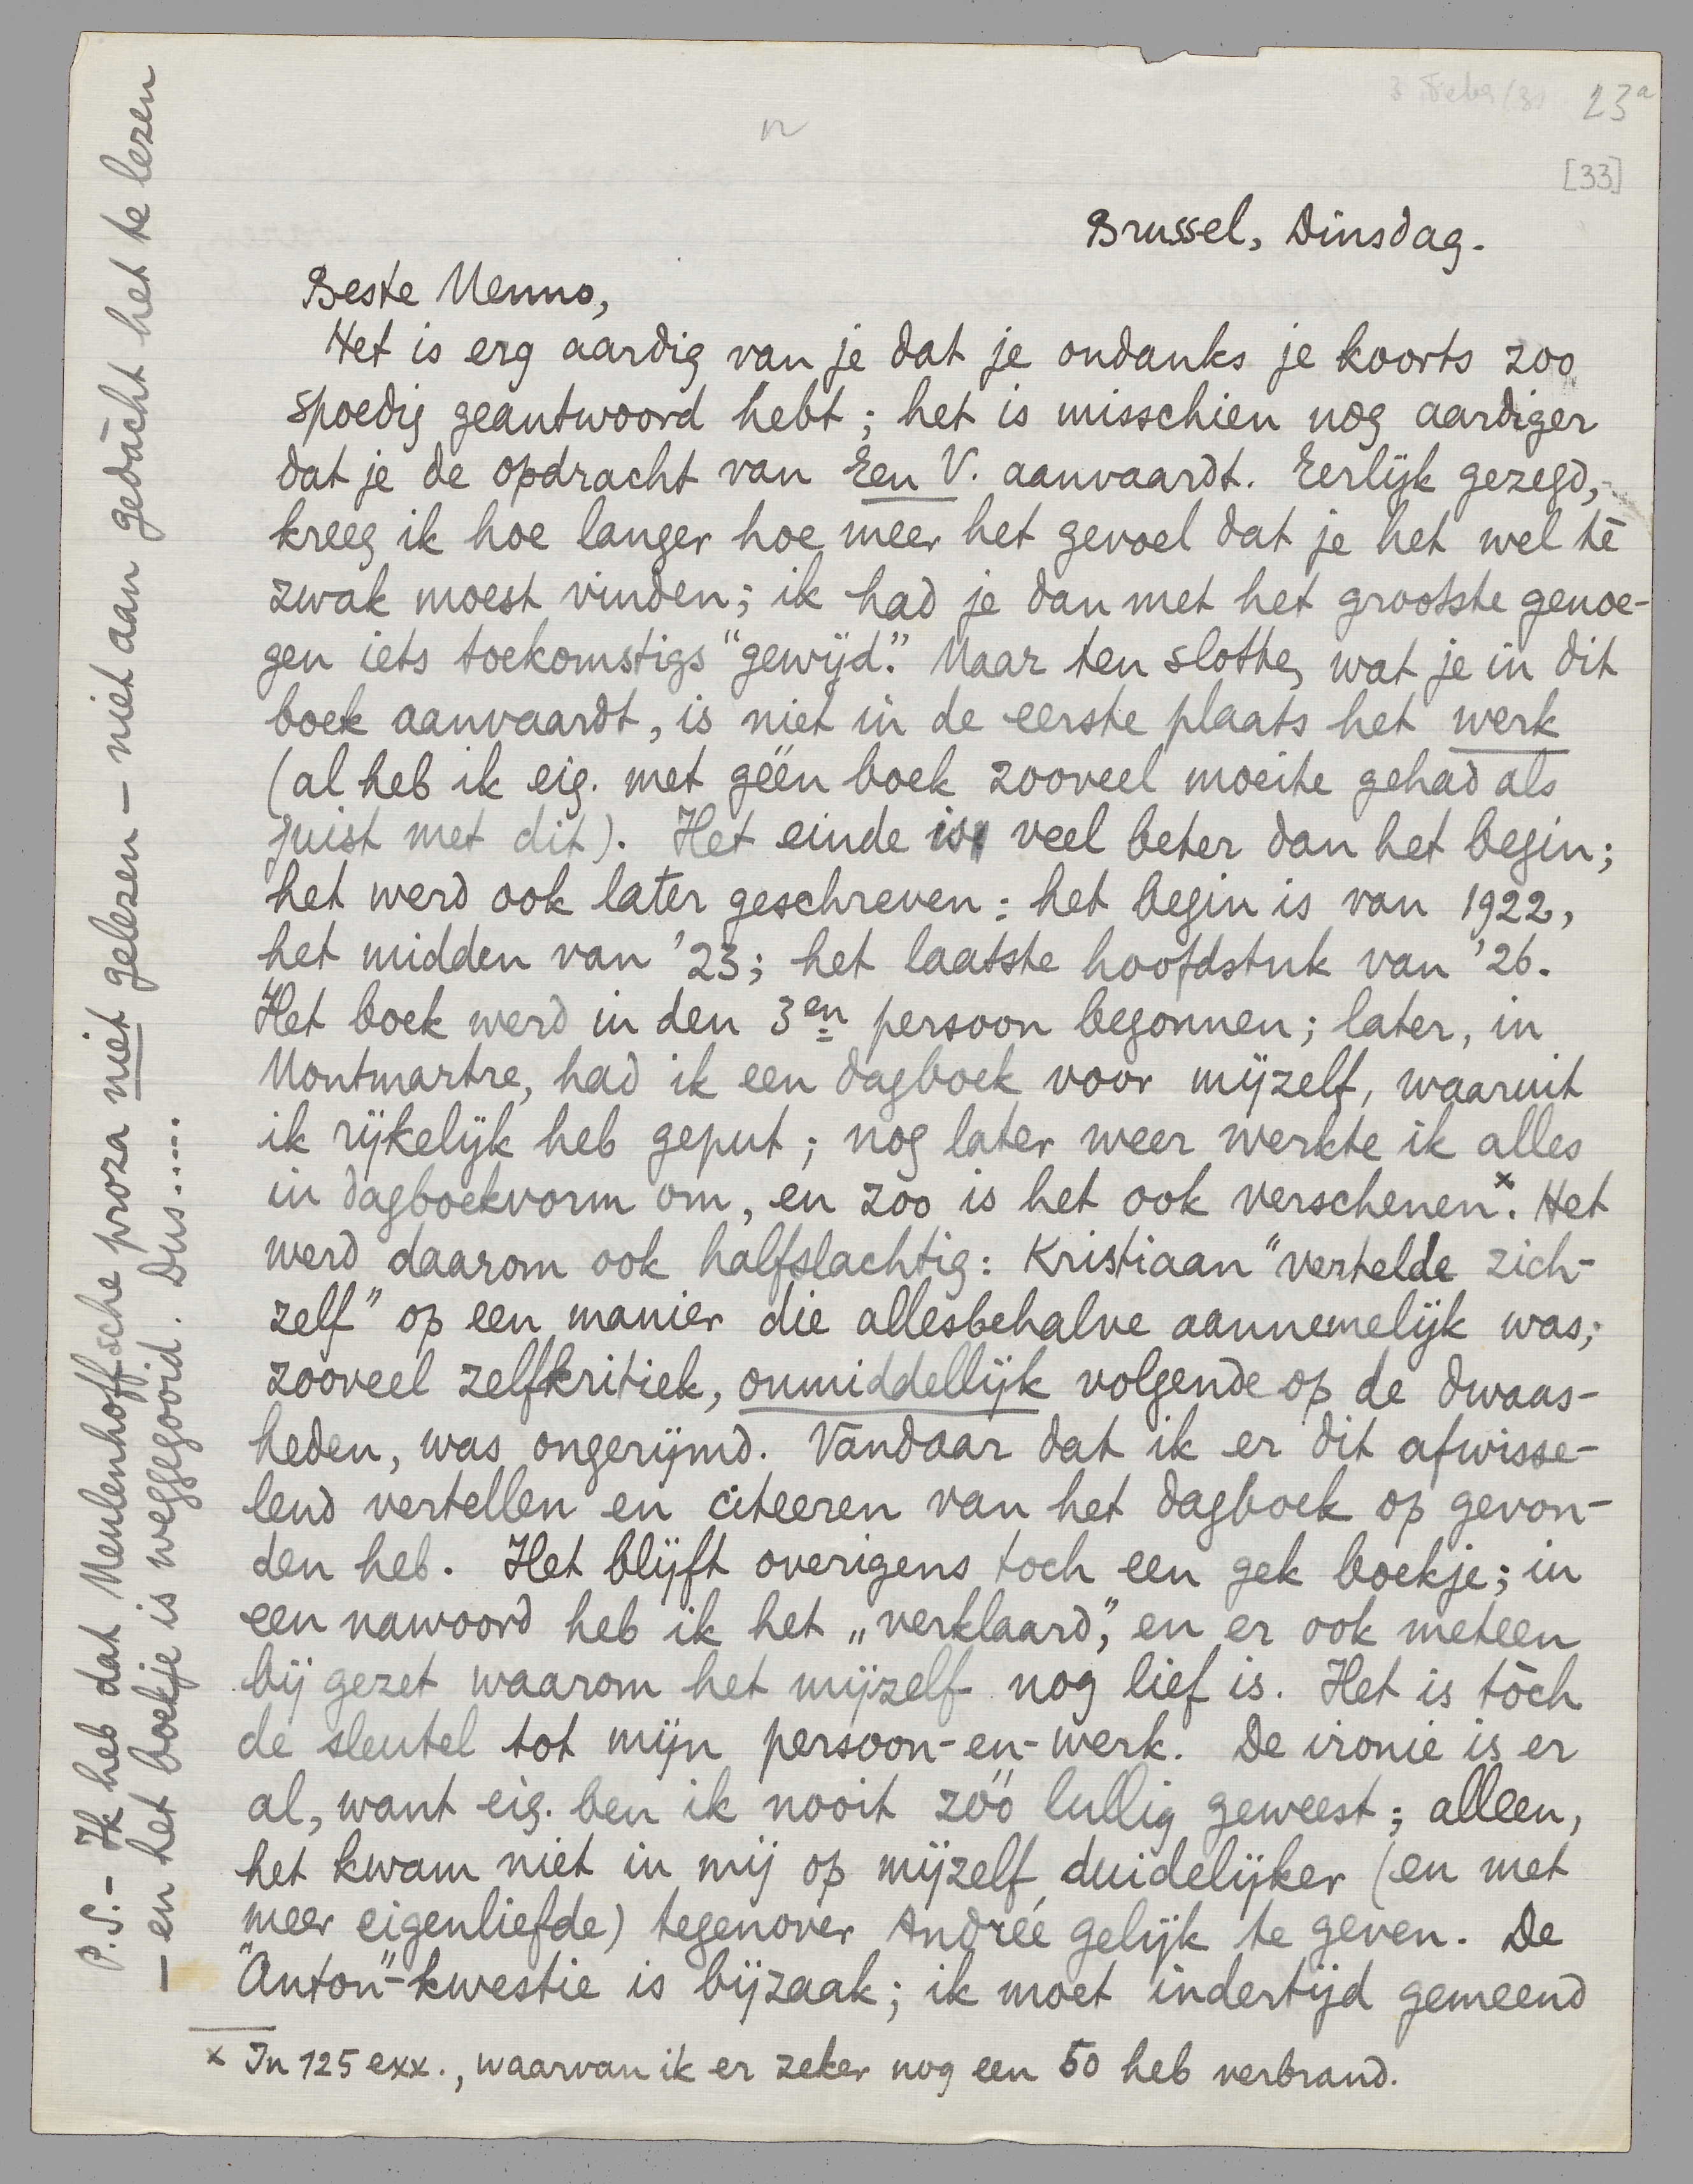 23a
[33]
Brussel, Dinsdag.
Beste Menno,
Het is erg aardig van je dat je ondanks je koorts zoo
spoedig geantwoord hebt; het is misschien nog aardiger
dat je de opdracht van Een V. aanvaardt. Eerlijk gezegd,
kreeg ik hoe langer hoe meer het gevoel dat je het wel tē
zwak moest vinden; ik had je dan met het grootste genoe-
gen iets toekomstigs "gewijd". Maar ten slotte, wat je in dit
boek aanvaardt, is niet in de eerste plaats het werk
(al heb ik eig. met géén boek zooveel moeite gehad als
juist met dit). Het einde is veel beter dan het begin;
het werd ook later geschreven: het begin is van 1922,
het midden van '23; het laatste hoofdstuk van '26.
Het boek werd in den 3en persoon begonnen; later, in
Montmartre, had ik een dagboek voor mijzelf, waaruit
ik rijkelijk heb geput; nog later weer werkte ik alles
in dagboekvorm om, en zóó is het ook verschenen.x Het
werd daarom ook halfslachtig: Kristiaan "vertelde zich-
zelf" op een manier die allesbehalve aannemelijk was;
zooveel zelfkritiek, onmiddellijk volgende op de dwaas-
heden, was ongerijmd. Vandaar dat ik er dit afwisse-
lend vertellen en citeeren van het dagboek op gevon-
den heb. Het blijft overigens toch een gek boekje; in
een nawoord heb ik het „verklaard", en er ook meteen
bij gezet waarom het mijzelf nog lief is. Het is tōch
de sleutel tot mijn persoon-en-werk. De ironie is er
al, want eig. ben ik nooit zóó lullig geweest; alleen,
het kwam niet in mij op mijzelf duidelijker (en met
meer eigenliefde) tegenover Andrée gelijk te geven. De
"Anton"-kwestie is bijzaak; ik moet indertijd gemeend
x In 125 exx., waarvan ik er zeker nog een 50 heb verbrand.
P.S.- Ik heb dat Meulenhoffsche proza niet gelezen – niet aan gedācht het te lezen
– en het boekje is weggegooid. Dus.....